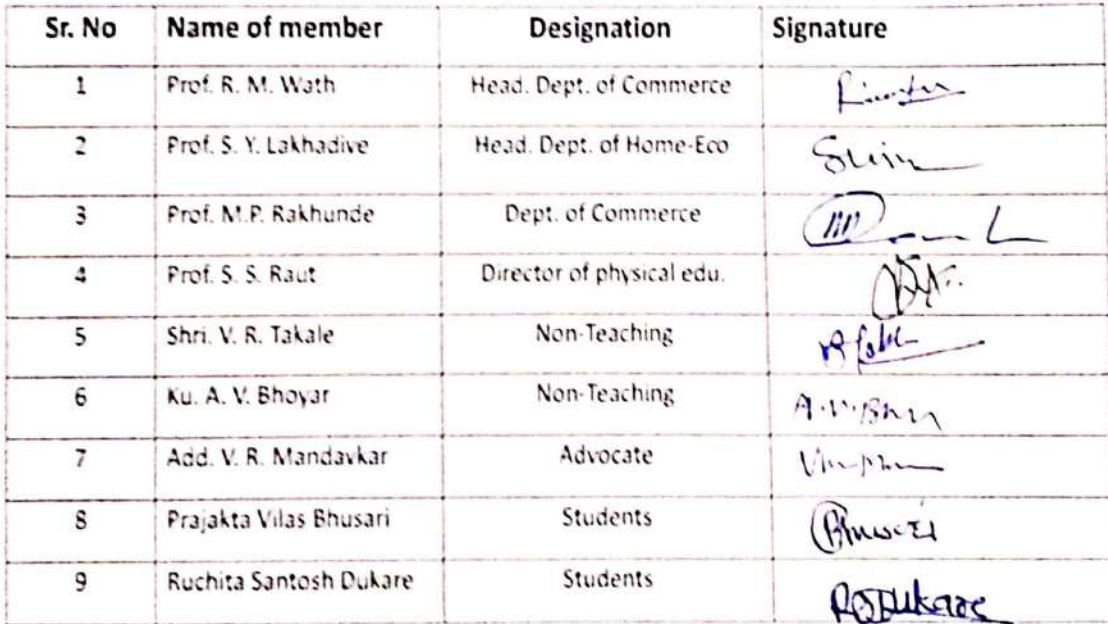 Sr. No Name of member Designation Signature
1 Prof. R. M. Wath Head. Dept. of Commerce
2 Prof. S. Y. Lakhadive Head. Dept. of Home-Eco
3 Prof. M.P. Rakhunde Dept. of Commerce
4 Prof. S. S. Raut Director of physical edu.
5 Shri. V. R. Takale Non-Teaching
6 Ku. A. V. Bhoyar Non-Teaching
7 Add. V. R. Mandavkar Advocate
8 Prajakta Vilas Bhusari Students
9 Ruchita Santosh Dukare Students